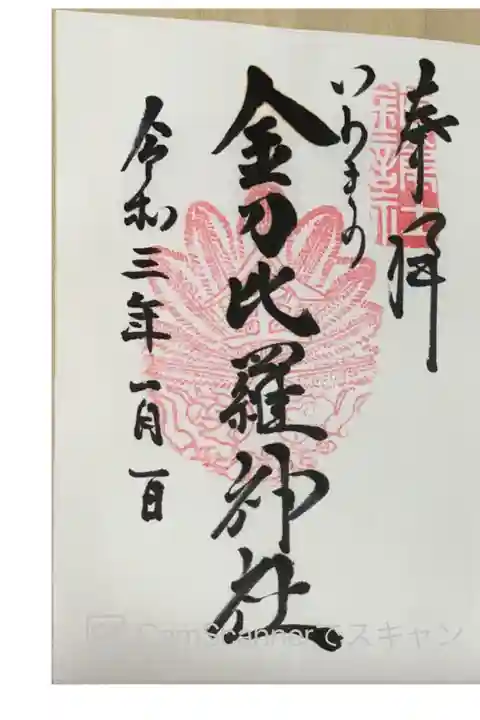 奉拝
いわきの
金刀比羅神社
令和三年一月一日
CamScannerでスキャン